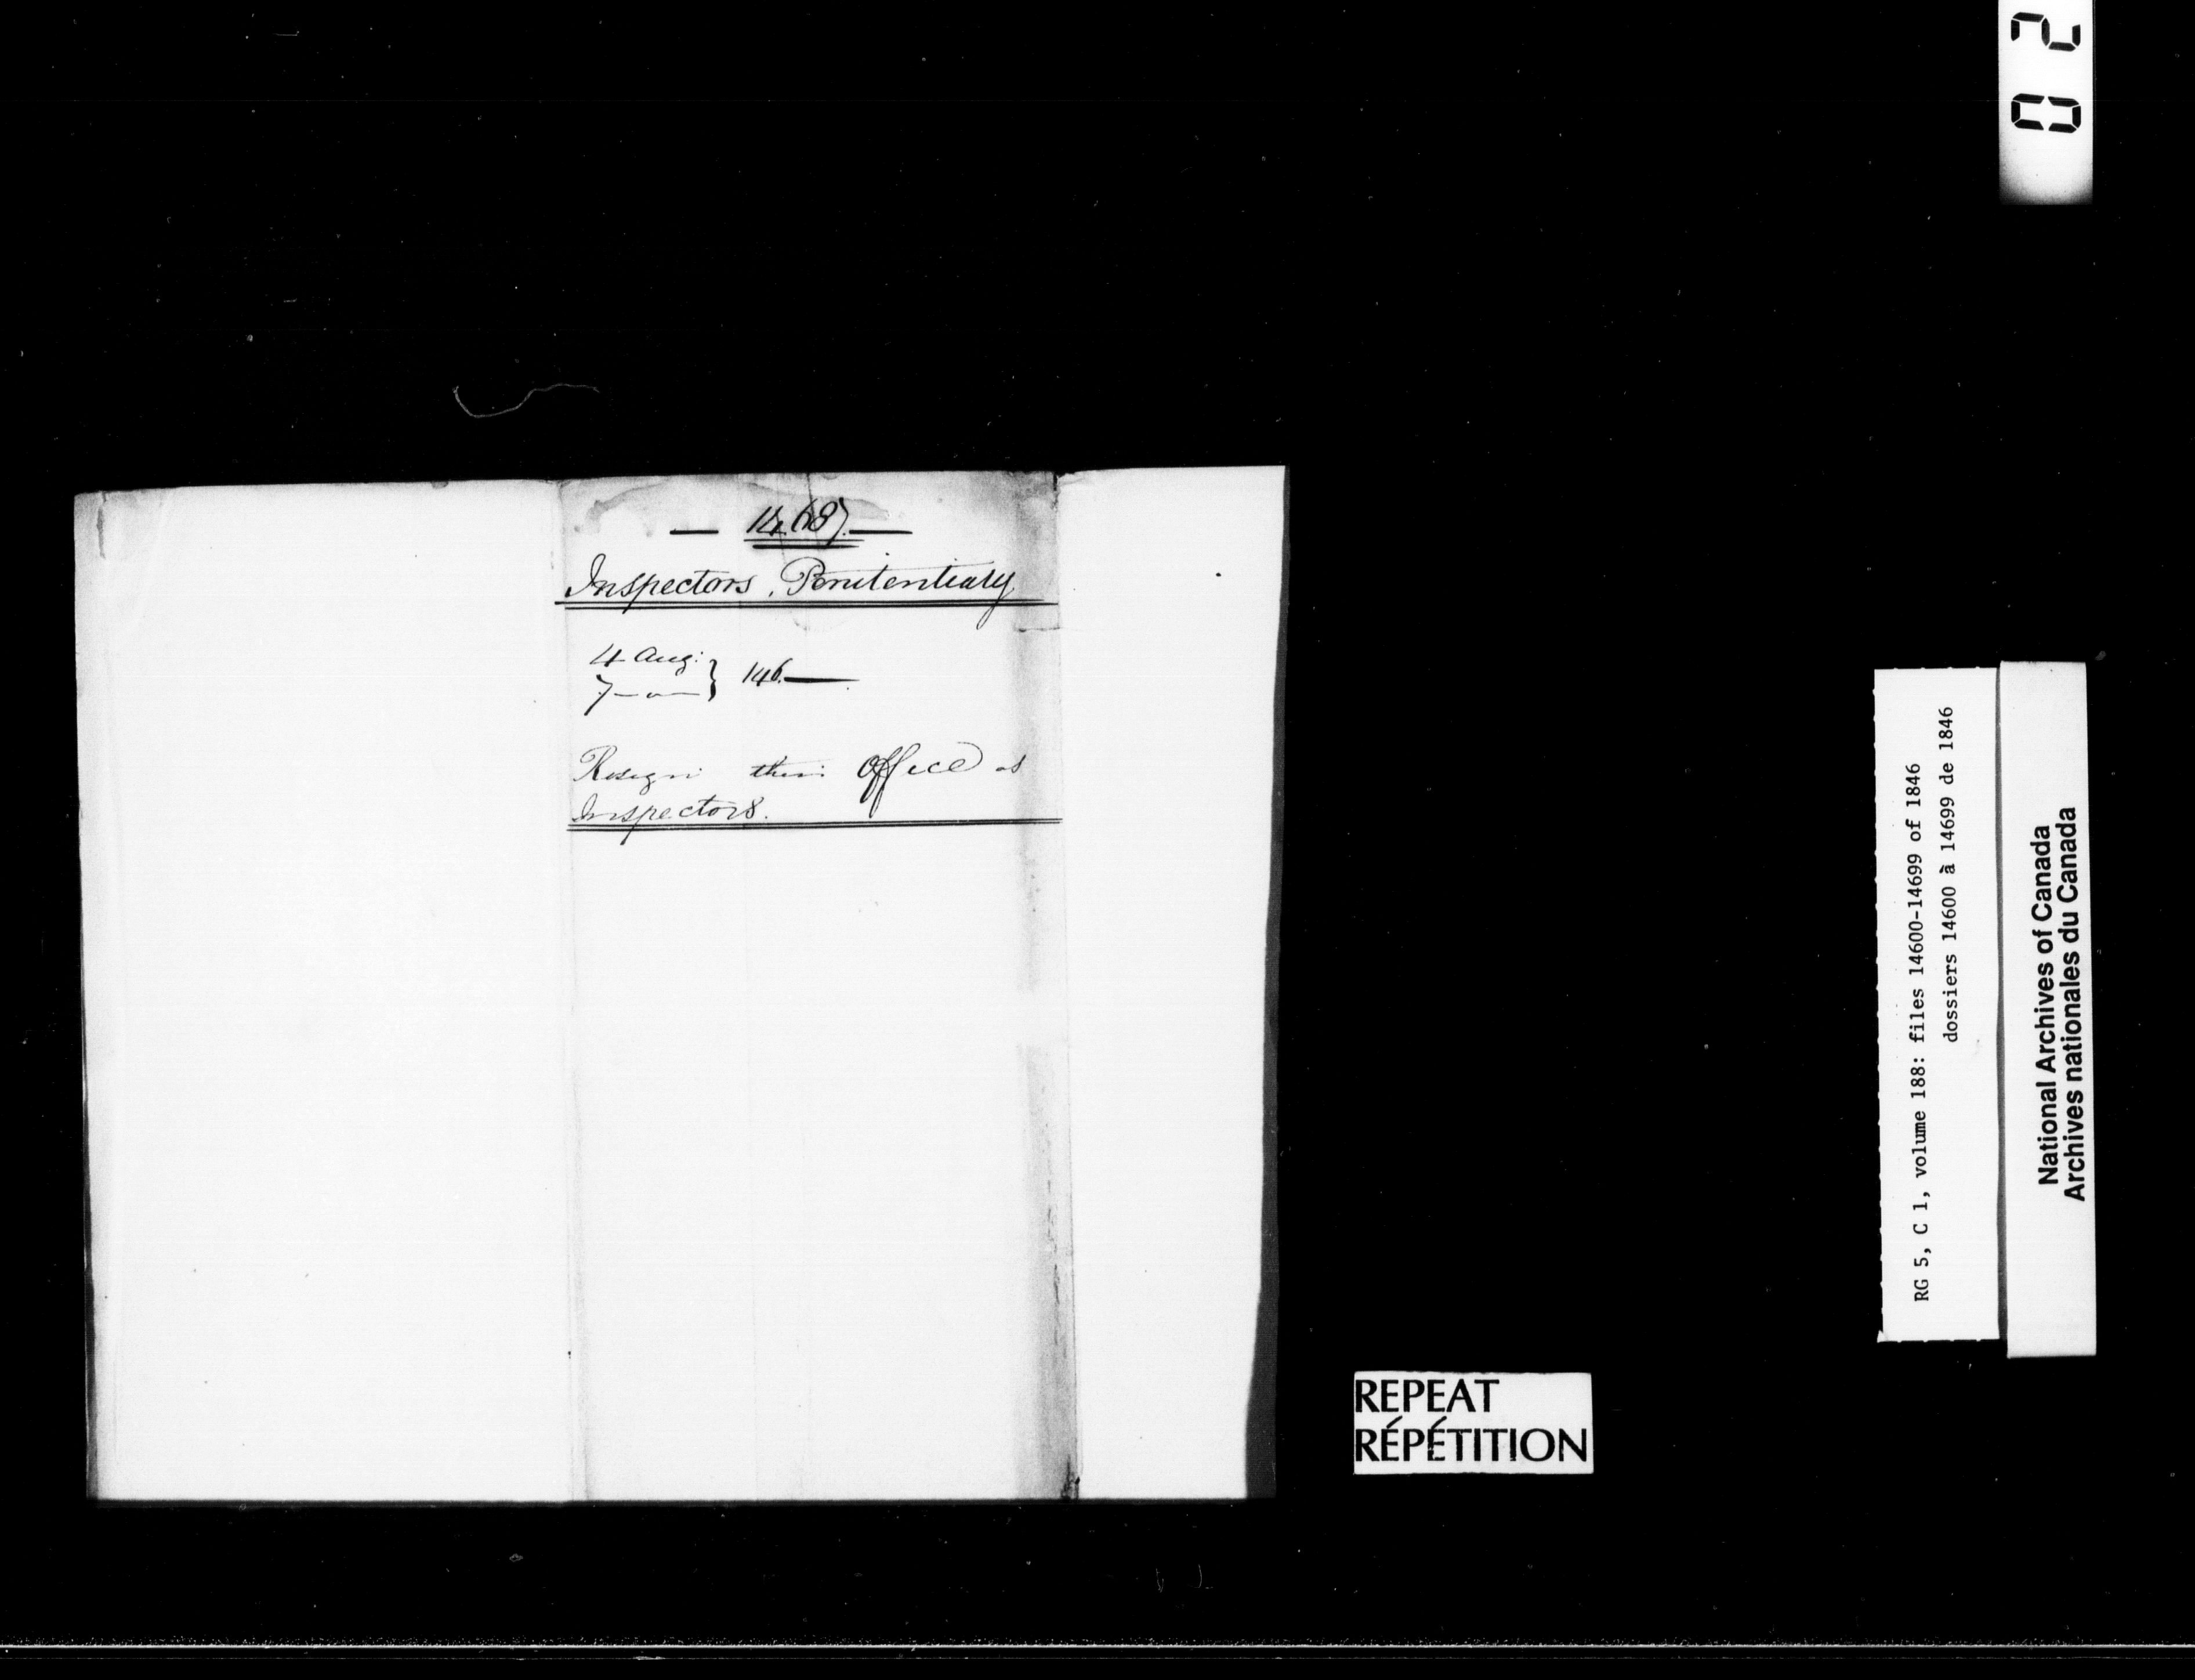 — 14,687. —
Inspectors, Penitentiary
4 Aug:
7 — " — } 146. —
Resign their Office as
Inspectors.
REPEAT
RÉPÉTITION
RG 5, C 1, volume 188: files 14600-14699 of 1846
dossiers 14600 à 14699 de 1846
National Archives of Canada
Archives nationales du Canada
02